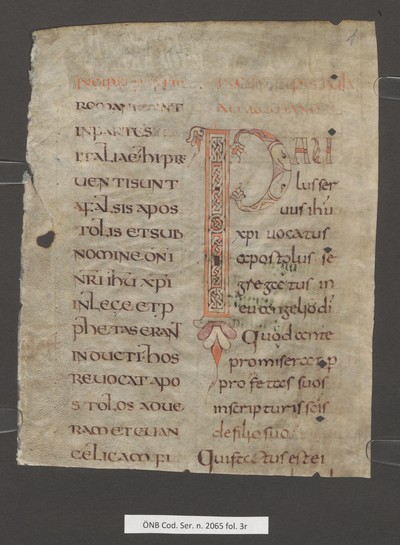 ROMANI SUNT
INPARTES
ITALIAE hI PRE
UENTI SUNT
AFALSIS APOS
TOLIS ET SUB
NOMINE DNI
NRI IhU XPI
INLEGE ET P
PhETAS ERANT
INDUCTI hOS
REUOCAT APO
STOLOS ADUE
RAM ET EUAN
GELICAM FI
PAU
lus ser
uus ihu
xpi uocatus
apostolus se
gregatus in
euangelio di
Quod ante
promiserat p
profetas suos
inscripturis scis
defilio suo
Qui factus est ei
ÖNB Cod. Ser. n. 2065 fol. 3r